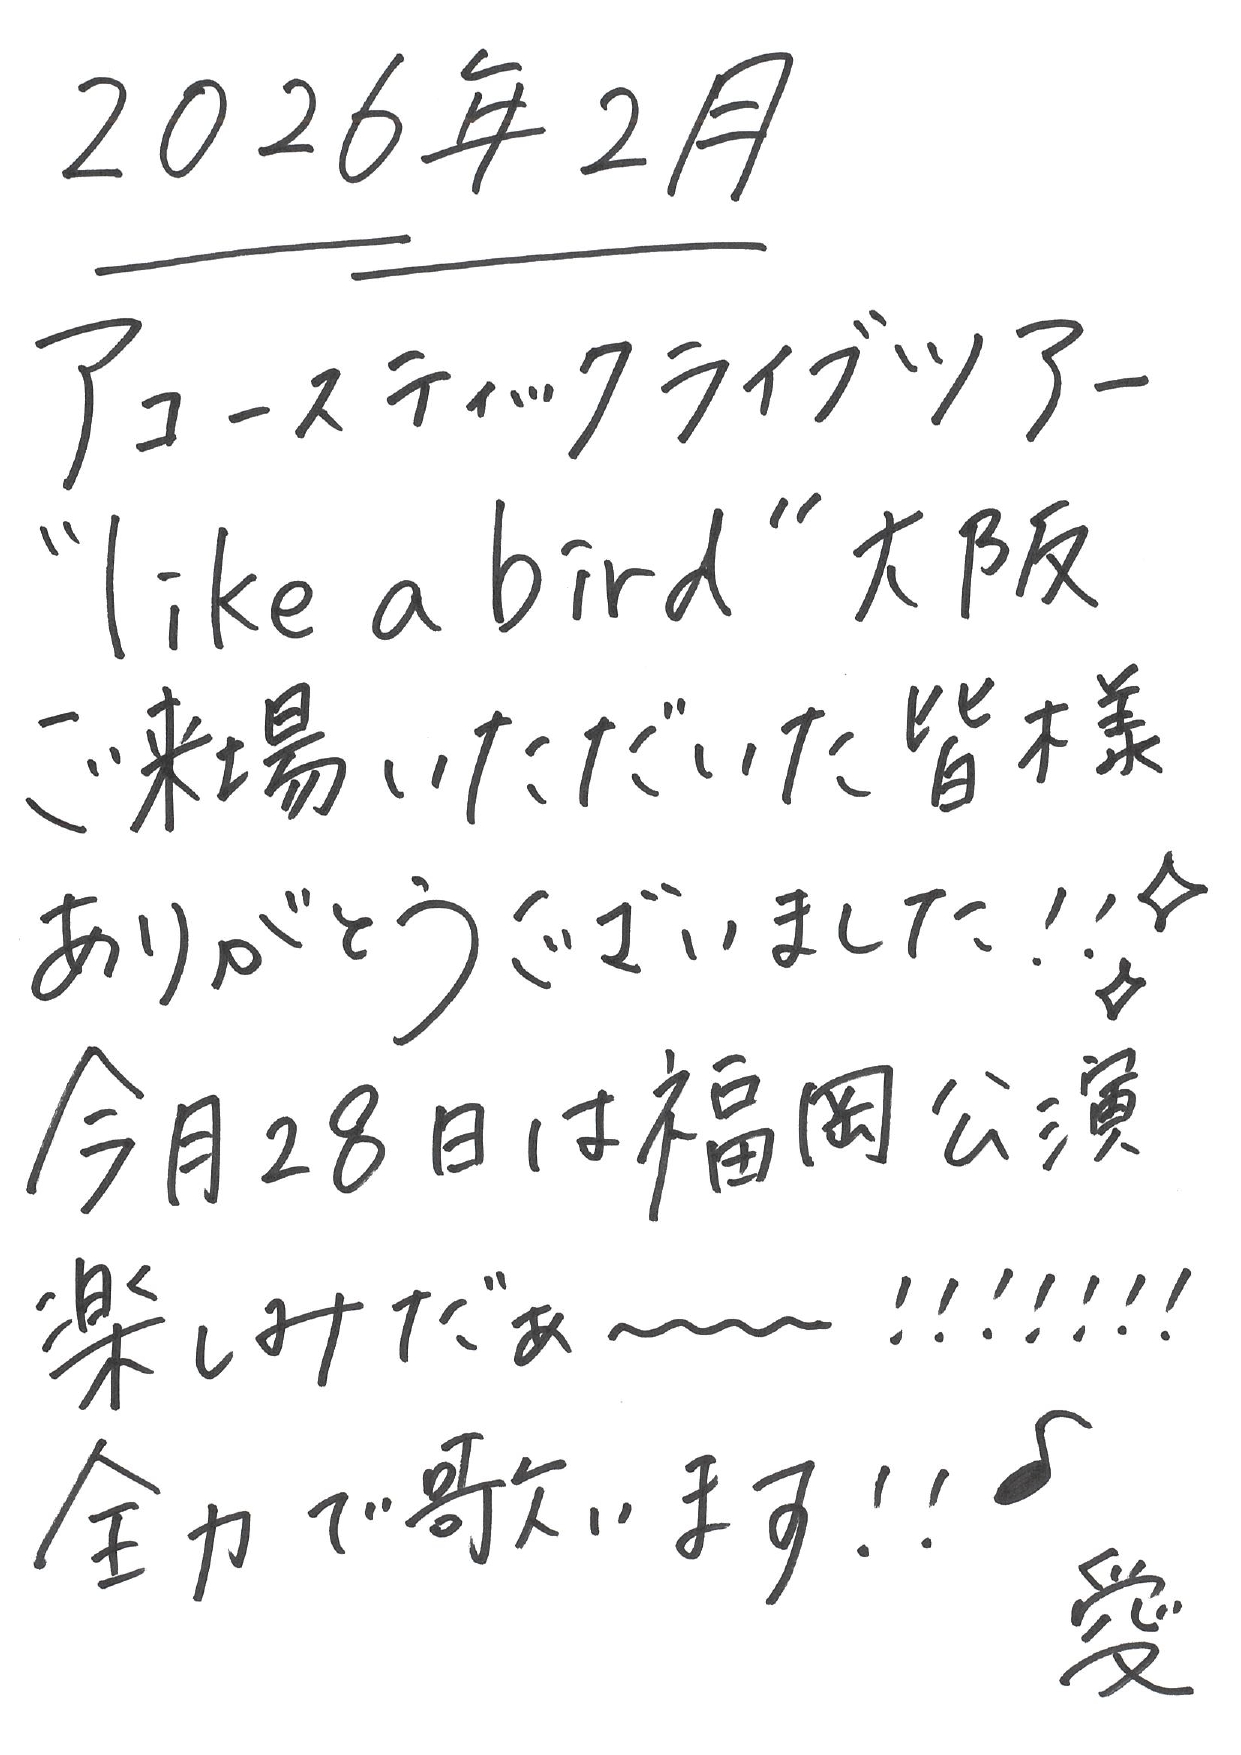 2026年2月
アコースティックライブツアー
"like a bird" 大阪
ご来場いただいた皆様
ありがとうございました!!
今月28日は福岡公演
楽しみだぁ〜〜〜!!!!!!!
全力で歌います!!♪
愛